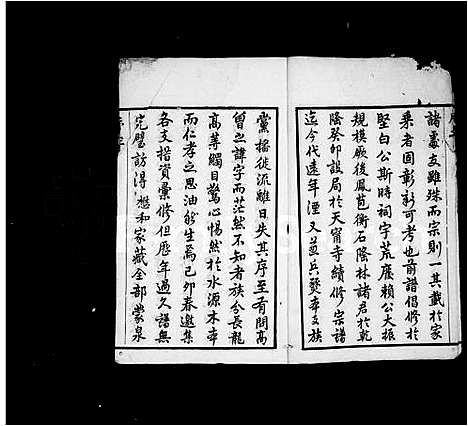 諸處支雖殊而宗則一其載於家
乘者固彰彰可考也前譜倡修於
堅白公斯時祠宇荒廢賴公大振
規模厥後鳳苞衡石隆林諸君於乾
隆癸卯設局於天甯寺續修宗譜
迄今代遠年湮又兼兵燹本支族
黨播徙流離日失其序至有問高
曾之諱字而茫然不知者族兮長龍
高等觸目驚心惕然於水源木本
而仁孝之思油然生焉己卯春邀集
各支措資彙修但歷年過久譜無
完璧訪得 懋和家藏全部蒙泉